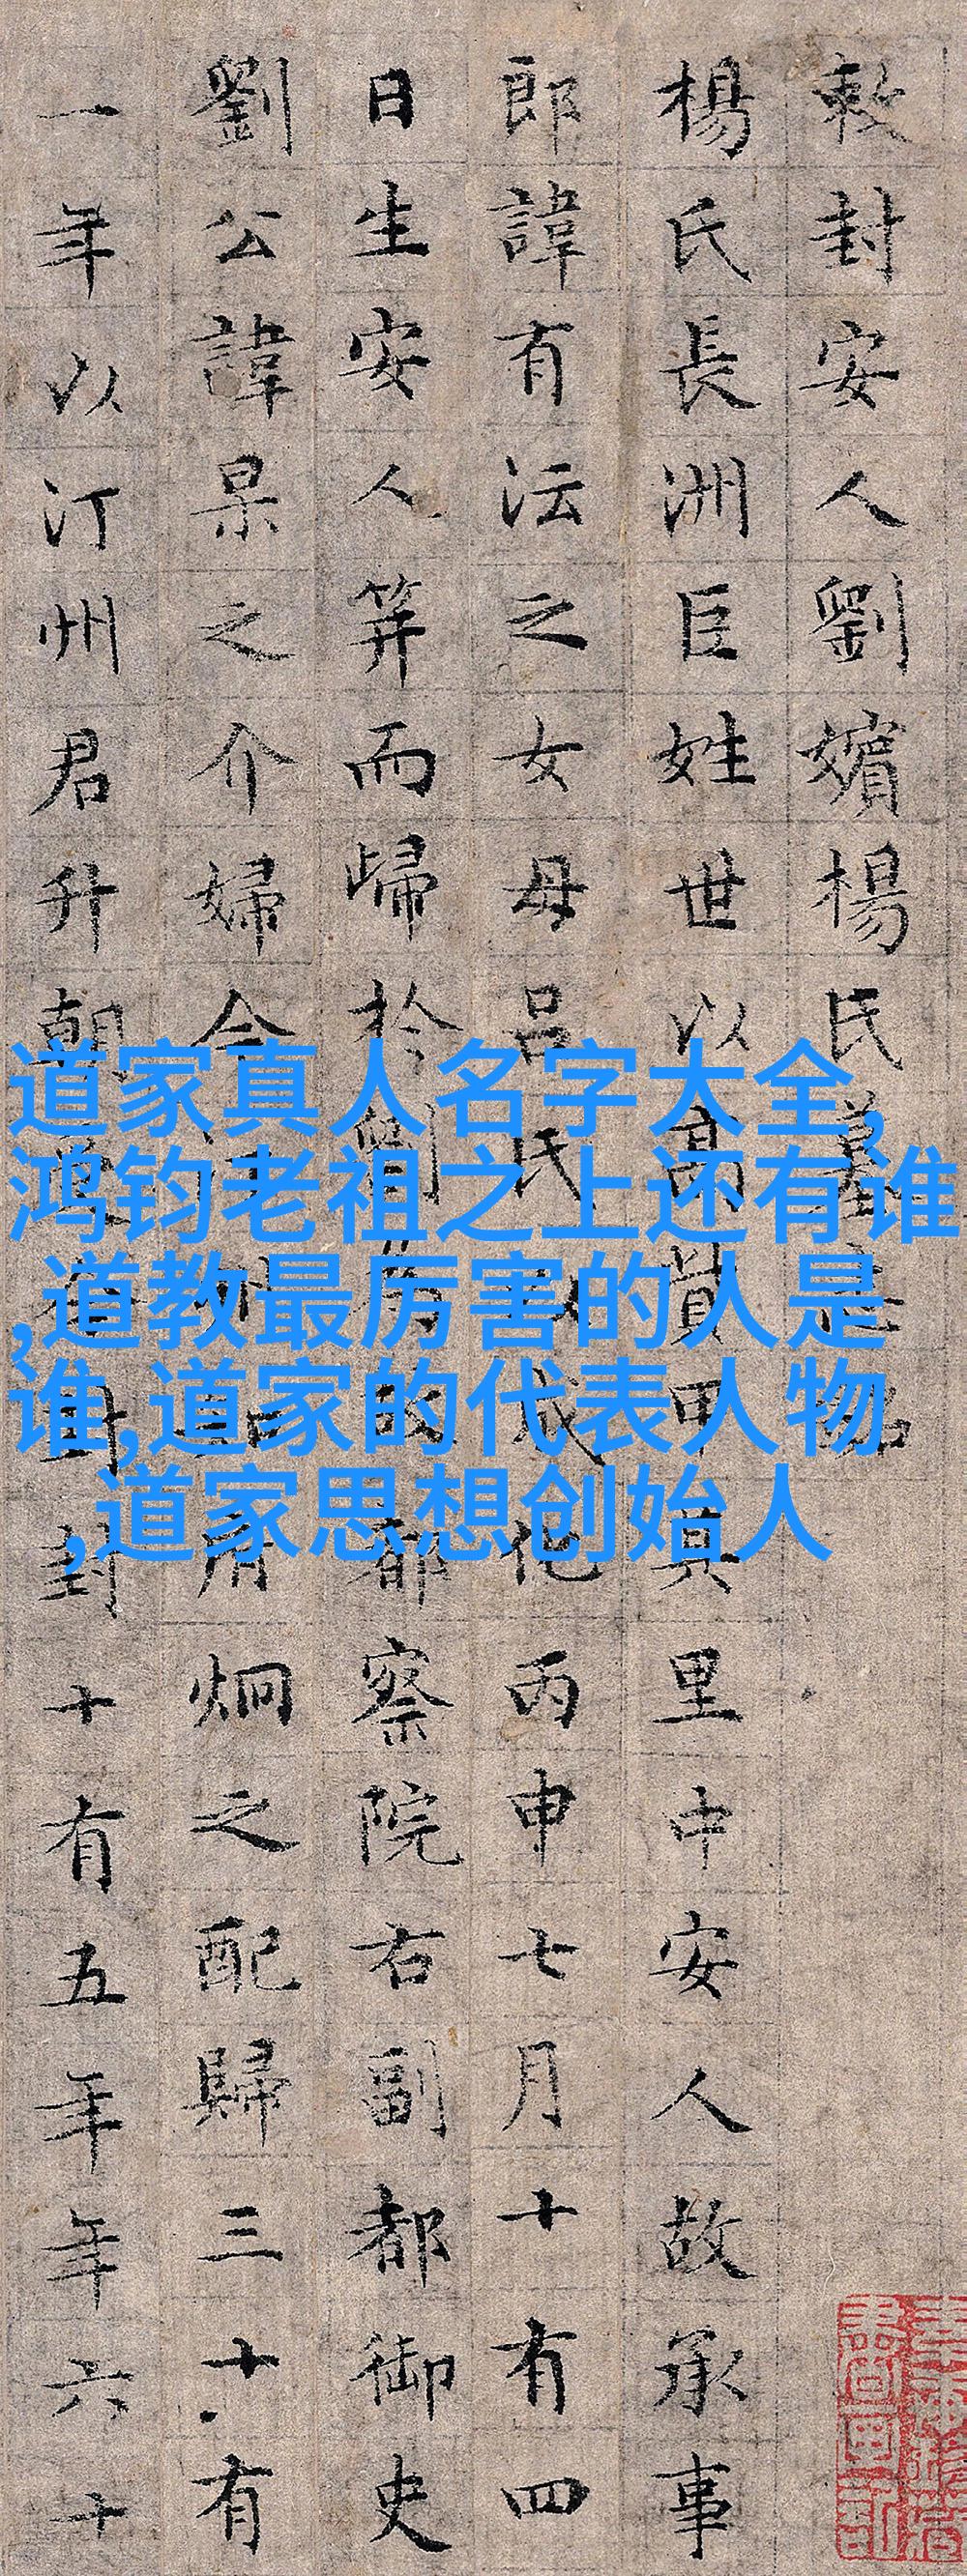 敕封安人劉嬪楊氏墓志銘
楊氏長洲巨姓世以高貲甲其里中安人故承事
郎諱有沄之女母呂氏以成化丙申七月十有四
日生安人笄而歸於劉為故都察院右副都御史
劉公諱杲之介婦今炯之配歸三十有
一年以汀州君升朝封封十有五年年六十
道家真人名字大全,
鸿钧老祖之上还有谁
,道教最厉害的人是
谁,道家的代表人物
,道家思想创始人